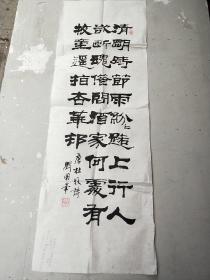 清朙時節雨紛〻路上行人
欲斷魂借問酒家何處有
牧童遥指杏華邨
唐杜牧詩